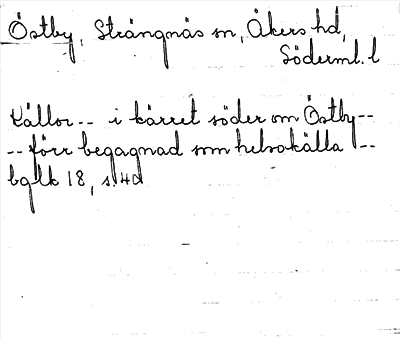 Östby, Strängnäs sn, Åkers hd,
Söderml. l
Källor -- i kärret söder om Östby --
-- förr begagnad som helsokälla --
bglk 18, s. 40